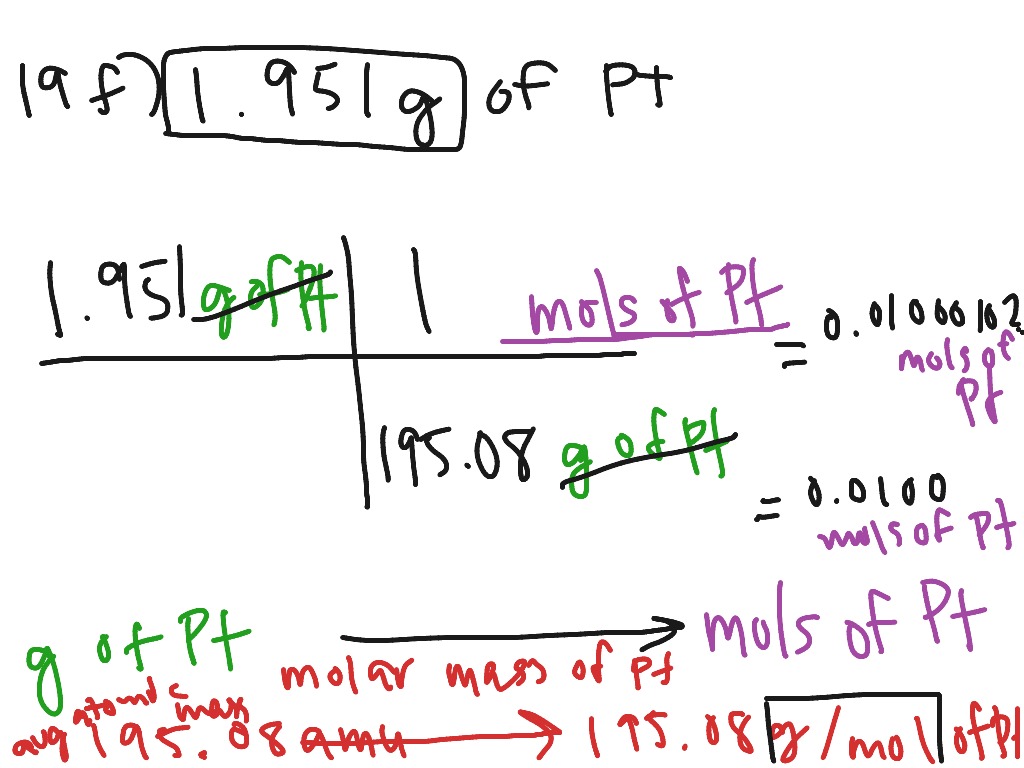 19 f) 1.951 g of Pt
1.951 g of Pt | 1 mols of Pt = 0.01000102
mols of
Pt
195.08 g of Pt
= 0.0100
mols of Pt
g of Pt → mols of Pt
molar mass of Pt
avg atomic mass
195.08 amu → 195.08 g/mol of Pt